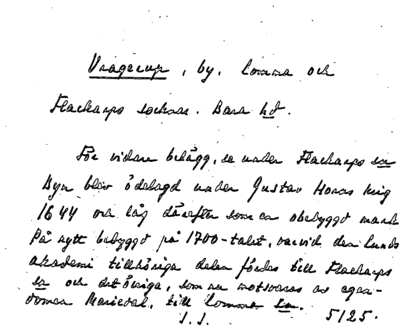 Vragerup, by. Lomma och
Flackarps socknar. Bara hd.
För vidare belägg, se under Flackarps sn
Byn blev ödelagd under Gustav Horns krig
1644 och låg därefter som en obebyggd mark
På nytt bebyggd på 1700-talet, varvid den Lunds
akademi tillhöriga delen fördes till Flackarps
sn och det övriga, som nu motsvaras av egen-
domen Marievad, till Lomma sn.
I. I. 5125.